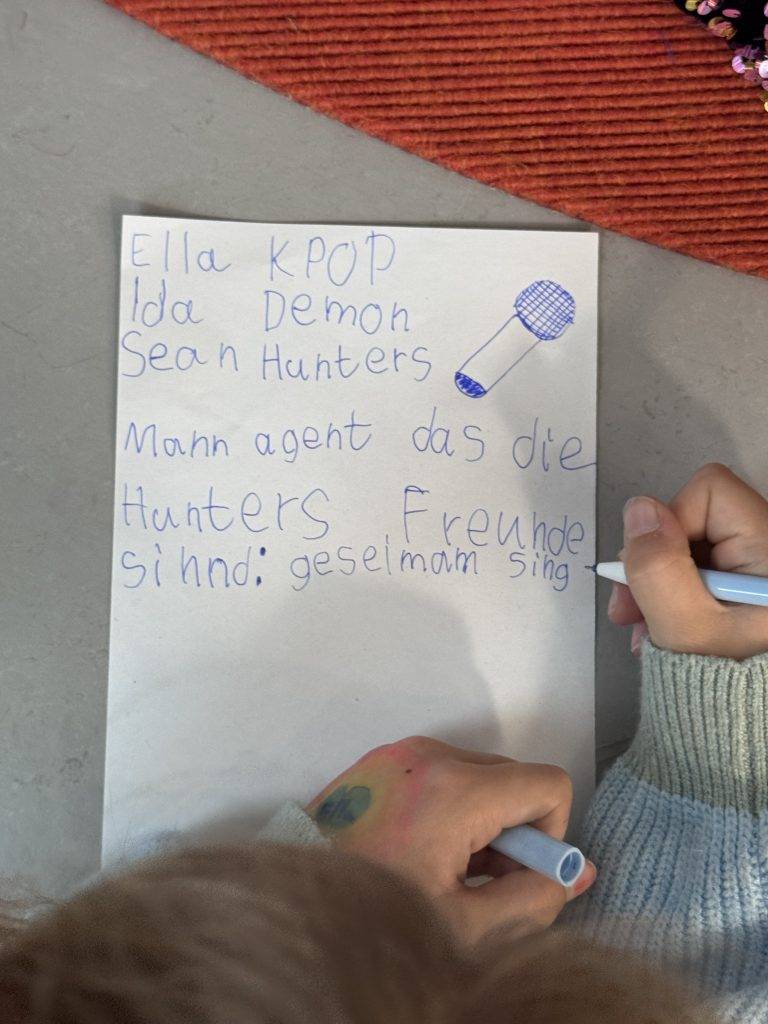 Ella KPOP
Ida Demon
Sean Hunters
Mann agent das die
Hunters Freunde
sihnd: geseimam sing